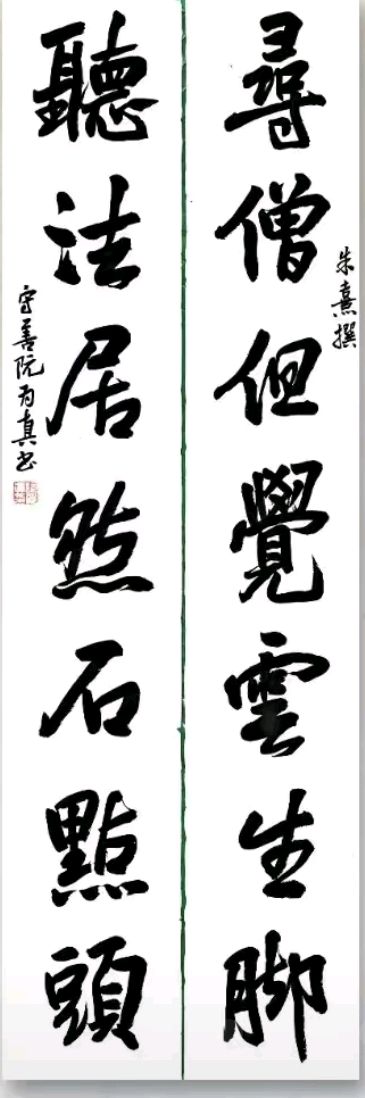 朱熹撰
尋僧但覺雲生脚
聽法居然石點頭
守善阮为真书